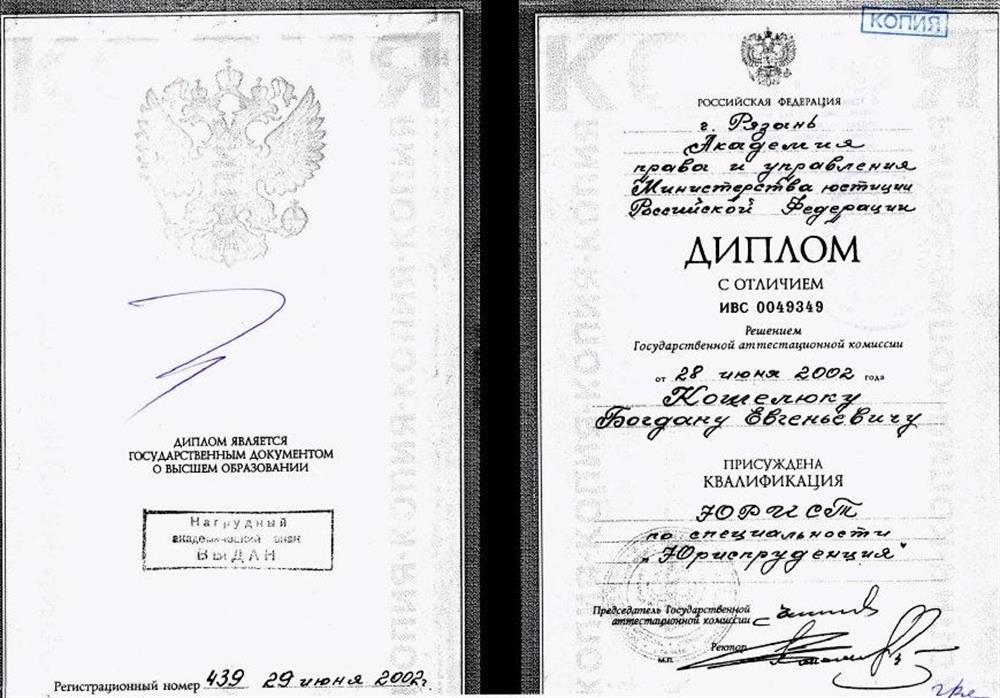 ДИПЛОМ ЯВЛЯЕТСЯ
ГОСУДАРСТВЕННЫМ ДОКУМЕНТОМ
О ВЫСШЕМ ОБРАЗОВАНИИ
Нагрудный
академический знак
ВЫДАН
Регистрационный номер 439 29 июня 2002г.
КОПИЯ
РОССИЙСКАЯ ФЕДЕРАЦИЯ
г. Рязань
Академия
права и управления
Министерства юстиции
Российской Федерации
ДИПЛОМ
С ОТЛИЧИЕМ
ИВС 0049349
Решением
Государственной аттестационной комиссии
от 28 июня 2002 года
Кошелюку
Богдану Евгеньевичу
ПРИСУЖДЕНА
КВАЛИФИКАЦИЯ
ЮРИСТ
по специальности
„Юриспруденция"
Председатель Государственной
аттестационной комиссии
Ректор
М.П.